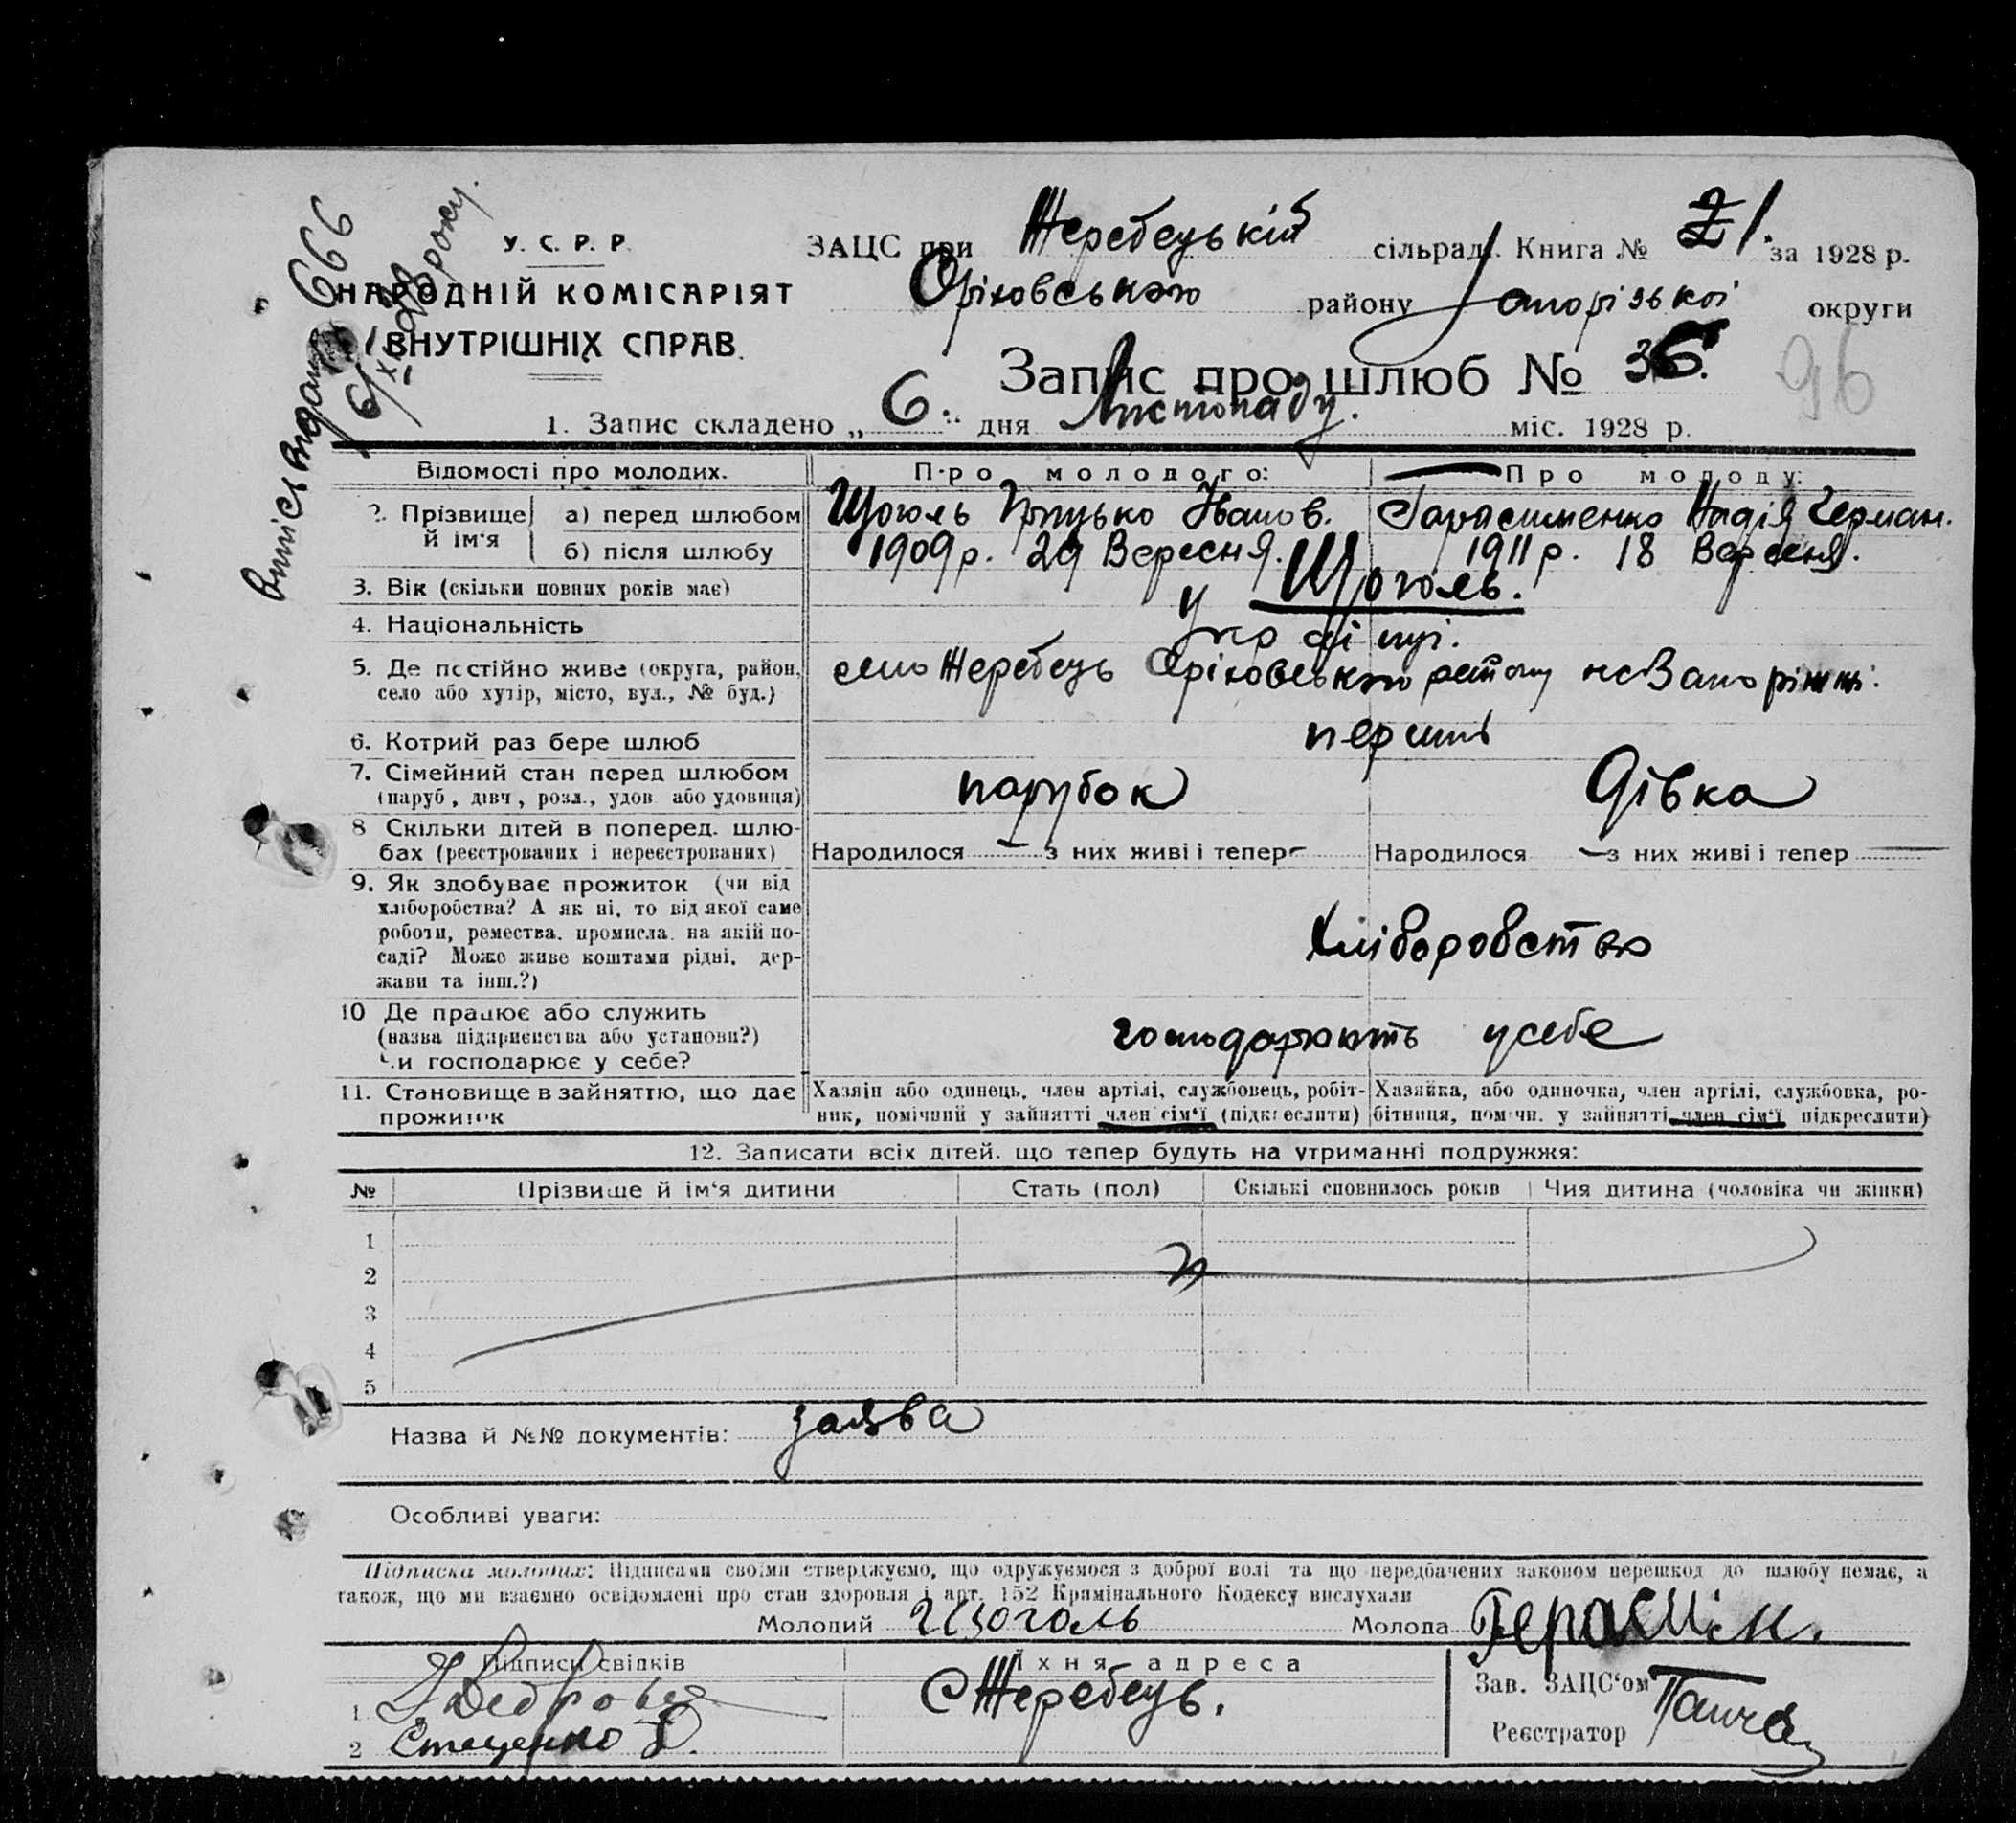 Витяг видано 666
6/XI 28 року.
У. С. Р. Р.
НАРОДНІЙ КОМІСАРІЯТ
ВНУТРІШНІХ СПРАВ.
ЗАЦС при Жеребецькій сільрад. Книга № 1. за 1928 р.
Оріховського району Запорізької округи
Запис про шлюб № 36.
96
1. Запис складено „ 6 " дня Листопаду. міс. 1928 р.
Відомості про молодих. Про молодого: Про молоду:
2. Прізвище й ім'я а) перед шлюбом Щоголь Грицько Іванов. Гарасименко Надія Герман.
б) після шлюбу 1909 р. 29 Вересня. 1911 р. 18 Вересня.
3. Вік (скільки повних років має) Щоголь.
4. Національність україці.
5. Де постійно живе (округа, район, село Жеребець Оріховського району на Запоріжжі.
село або хутір, місто, вул., № буд.)
6. Котрий раз бере шлюб перший
7. Сімейний стан перед шлюбом парубок дівка
(паруб, дівч, розл., удов або удовиця)
8 Скільки дітей в поперед. шлю-
бах (реєстрованих і нереєстрованих) Народилося — з них живі і тепер — Народилося — з них живі і тепер —
9. Як здобуває прожиток (чи від
хліборобства? А як ні, то від якої саме
роботи, ремества, промисла, на якій по-
саді? Може живе коштами рідні, дер-
жави та інш.?)
хліборобство
10 Де працює або служить
(назва підприємства або установи?)
Чи господарює у себе?
господарюють у себе
11. Становище в зайняттю, що дає прожиток
Хазяін або одинець, член артілі, службовець, робіт-
ник, помічний у зайнятті член сім'ї (підкреслити)
Хазяйка, або одиночка, член артілі, службовка, ро-
бітниця, помічн. у зайнятті член сім'ї підкреслити)
12. Записати всіх дітей, що тепер будуть на утриманні подружжя:
№ Прізвище й ім'я дитини Стать (пол) Скількі сповнилось років Чия дитина (чоловіка чи жінки)
1
2
3
4
5
Назва й №№ документів: заява
Особливі уваги:
Підписка молодих: Підписами своїми стверджуємо, що одружуємося з доброї волі та що передбачених законом перешкод до шлюбу немає, а
також, що ми взаємно освідомлені про стан здоровля і арт. 152 Крямінального Кодексу вислухали
Молодий Щоголь Молода Герасімн.
Підписи свідків Їхня адреса
1 С Жеребець.
2 Стеценко
Зав. ЗАЦС'ом
Реєстратор